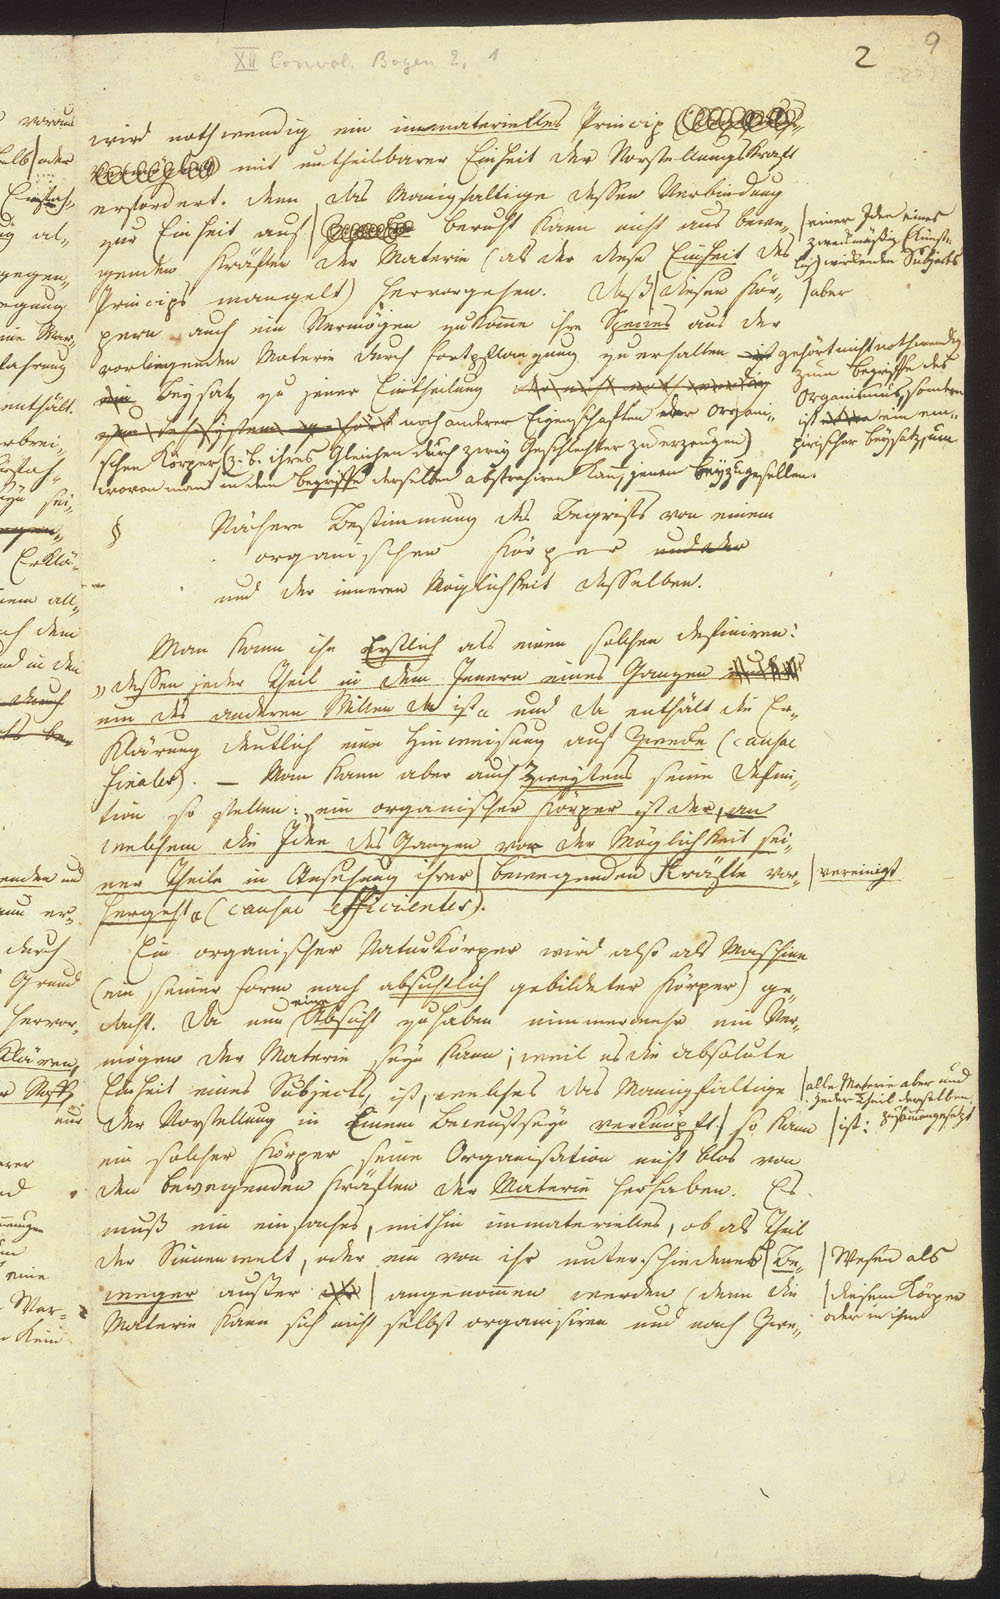 XII Convol. Bogen 2. 1
2
9
wird nothwendig ein immaterielles Princip
mit untheilbarer Einheit der Vorstellungskraft
erfordert. denn das Manigfaltige dessen Verbindung
zur Einheit auf beruht kann nicht aus bewe-
genden Kräften der Materie (als der diese Einheit des
Princips mangelt) hervorgehen. Daß diesen Kör-
pern auch ein Vermögen zukome ihre Species aus der
vorliegenden Materie durch Fortpflanzung zu erhalten ist
ein Beysatz zu jener Eintheilung der nicht nothwendig
zum System gehört noch anderer Eigenschaften der organi-
schen Körper (z. B. ihres Gleichen durch zwey Geschlechter zu erzeugen)
wovon man in dem Begriffe derselben abstrahiren kan, jenen beyzugesellen.
einer Idee eines
zweckmäßig (künst-
lich) wirkenden Subjects
aber
gehört nicht nothwendig
zum Begriffe des
Organismus, sondern
ist ein em-
pirischer Beysatz, um
§ Nähere Bestimmung des Begrifs von einem
organischen Körper und der
und der inneren Möglichkeit desselben.
Man kann ihn Erstlich als einen solchen definiren:
„dessen jeder Theil in dem Inneren eines Ganzen
um des anderen Willen da ist“ und da enthält die Er-
klärung deutlich eine Hinweisung auf Zwecke (causae
finales). — Man kann aber auch Zweytens seine Defini-
tion so stellen: „ein organischer Körper ist der, an
welchem die Idee des Ganzen vor der Möglichkeit sei-
ner Theile in Ansehung ihrer bewegenden Kräfte vor-
vereinigt
hergeht“ (causae efficientes).
Ein organischer Naturkörper wird also als Maschine
(ein seiner Form nach absichtlich gebildeter Körper) ge-
dacht. Da nun eine Absicht zu haben nimmermehr ein Ver-
mögen der Materie seyn kann; weil es die absolute
Einheit eines Subjects ist, welches das Manigfaltige
der Vorstellung in Einem Bewustseyn verknüpft: so kann
alle Materie aber und
jeder Theil derselben
ist: zusamengesetzt
ein solcher Körper seine Organisation nicht blos von
den bewegenden Kräften der Materie herhaben. Es
muß ein einfaches, mithin immaterielles, ob als Theil
der Sinnenwelt, oder ein von ihr unterschiedenes Be-
Wesen als
weger außer angenomen werden (denn die
diesem Körper
oder in ihm
Materie kann sich nicht selbst organisiren und nach Zwe-